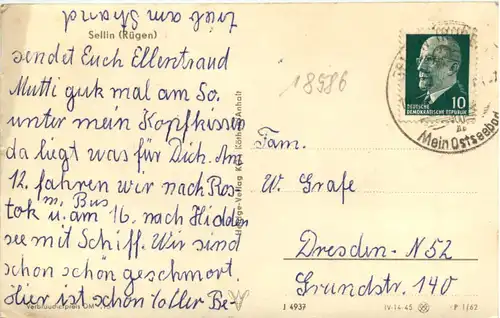 trieb am Strand
Sellin (Rügen)
sendet Euch Ellentraud
Mutti guk mal am So.
unter mein Kopfkissen
da liegt was für Dich. Am
12. fahren wir nach Ros-
m. Bus
tok u. am 16. nach Hidden
see mit Schiff. Wir sind
schon schön geschmort.
Hier ist schon toller Be-
Verbraucherpreis DM
J 4937
IV-14-45
P 1/62
18586
DEUTSCHE
DEMOKRATISCHE REPUBLIK
10
Mein Ostseebad
Fam.
W. Grafe
Dresden-N52
Grundstr. 140